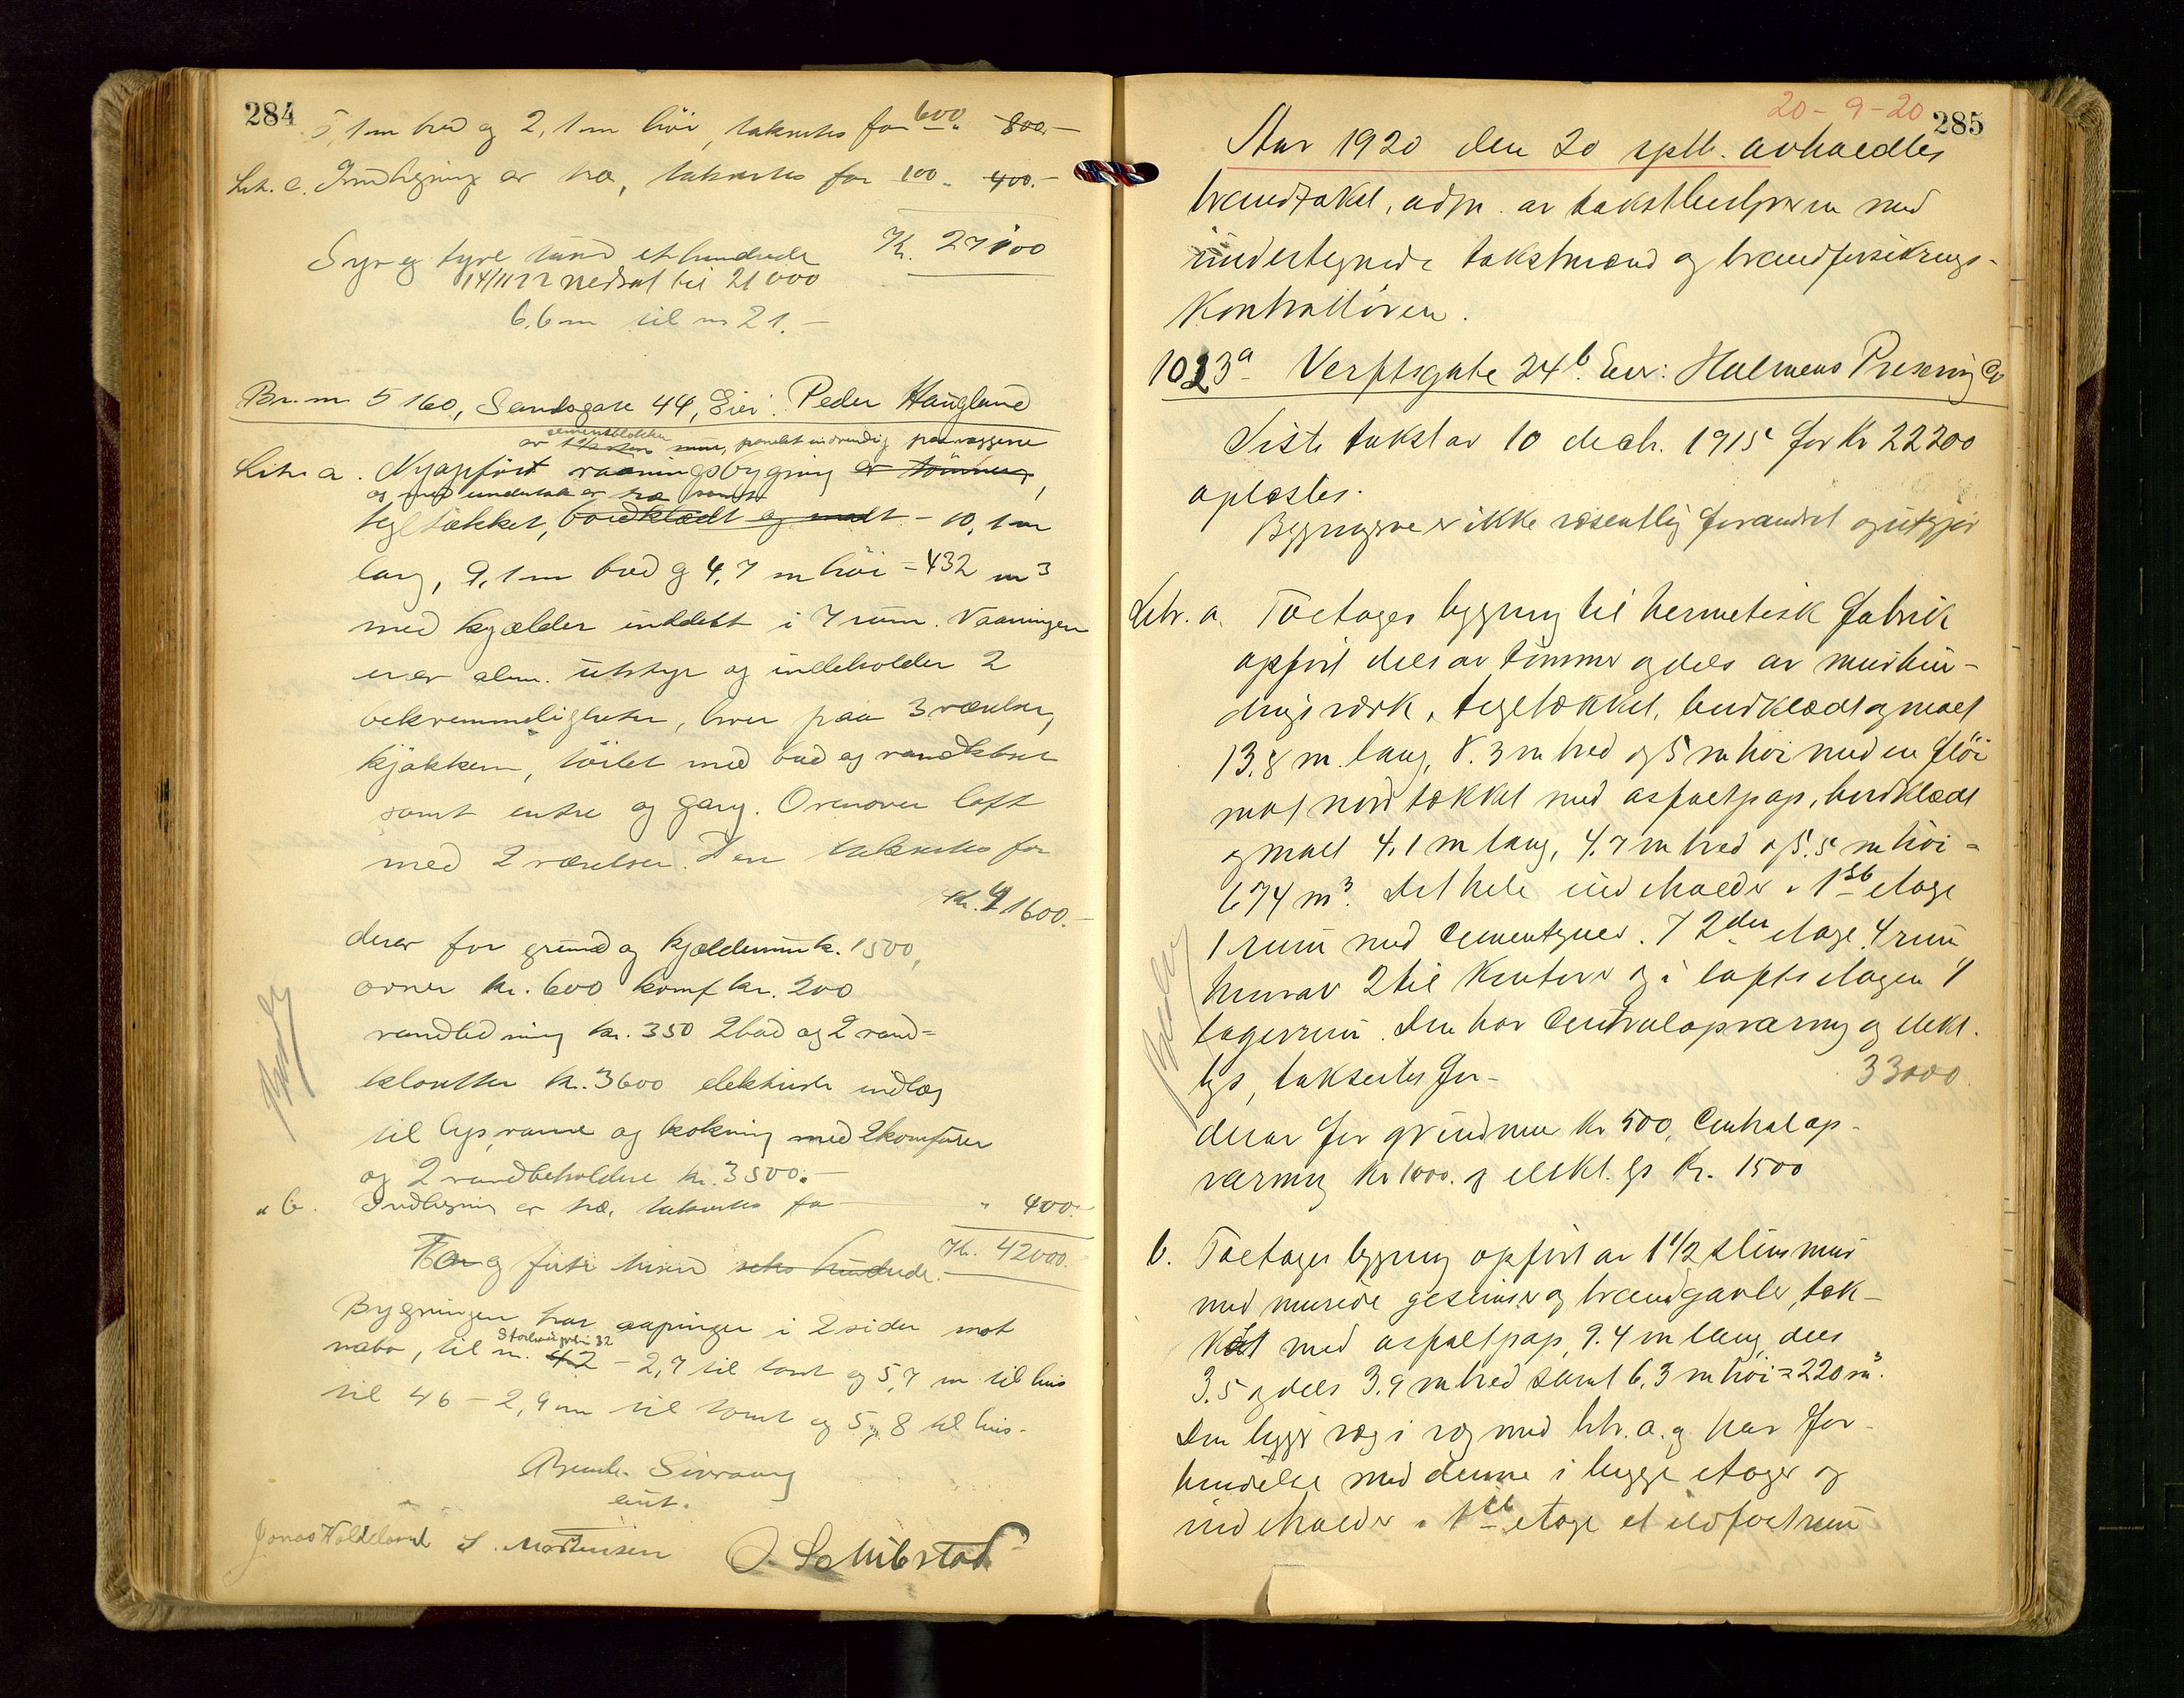 284
5,1 m bred og 2,1 m höi, taksertes for 600.- 800.-
Litr. c. Indhegning av træ, taksertes for 100 " 400.-
Kr. 27100
Syv og tyve tusind et hundrede
14/11 22 nedsat til 21000
6,6 m til nr 21.-
Br. nr 5160, Sandsgate 44, Eier: Peder Haugland
av cementblokker mur, panelt indvendig paa væggene
Litr. a. Nyopfört vaaningsbygning av tömmer,
og med undertak av træ samt
teglтækket, bordklædt og malt - 10,1 m
lang, 9,1 m bred og 4,7 m höi = 432 m³
med kjælder inddelt i 7 rum. Vaaningen
er av alm. utstyr og indeholder 2
bekvemmeligheter, hver paa 3 værelser,
kjökken, toilet med bad og vandkloset
samt entre og gang. Ovenover loft
med 2 værelser. Den taksertes for
Kr. 41600.-
derav for grund og kjældermur k. 1500,
ovner kr. 600 komf kr. 200
vandledning kr. 350 2 bad og 2 vand=
klosetter kr. 3600 elektriske indlæg
til lys, varme og kokning med 2 komfurer
og 2 vandbeholdere kr. 3500.-
" b. Indhegning av træ, taksertes for " 400.-
Kr. 42000.
To og firti tusind seks hundrede.
Bygningen har aapninger i 2 sider mot
nabo, til nr. 42 - 2,9 til tomt og 5,7 m til hus
til 46 - 2,9 m til tomt og 5,8 til hus.
Bernh. Sivraug
ent.
Jonas Haldeland S. Mortensen O. Schibstad
20-9-20 285
Aar 1920 den 20 septb. avholdtes
brandtakst, adm. av takstbestyreren med
undertegnede takstmænd og brandforsikrings-
kontrolløren.
1023ᵃ Verftsgate 24ᵇ. Eier: Holmens Preserving Co
Siste takst av 10 decb. 1915 for Kr 22200
oplæstes.
Bygningene er ikke væsentlig forandret og utgjör
Litr. a. Toetages bygning til hermetisk fabrik
opfört dels av tömmer og dels av murbin-
dingsværk, tegltækket, bordklædt og malt
13.8 m lang, 8.3 m bred og 5 m höi med en flöi
mot nord tækket med asfaltpap, bordklædt
og malt 4.1 m lang, 4.7 m bred og 5.5 m höi =
674 m³. Det hele indeholder i 1ste etage
1 rum med cementgulv. I 2den etage 4 rum
hvorav 2 til kontorer og i loftsetagen 4
lagerrum. Den har centralopvarmng og elekt.
lys, taksertes for- 33000.
derav for grundmur kr 500, centralop-
varmng kr 1000. og elekt. lys Kr. 1500
b. Toetages bygning opfört av 1 1/2 stens mur
med murede gesimser og brandgavler, tæk-
ket med asfaltpap, 9.4 m lang, dels
3.5 og dels 3.9 m bred samt 6,3 m höi = 220 m³.
Den ligger væg i væg med litr. a. og har for-
bindelse med denne i begge etager og
indeholder i 1ste etage et ildfast rum